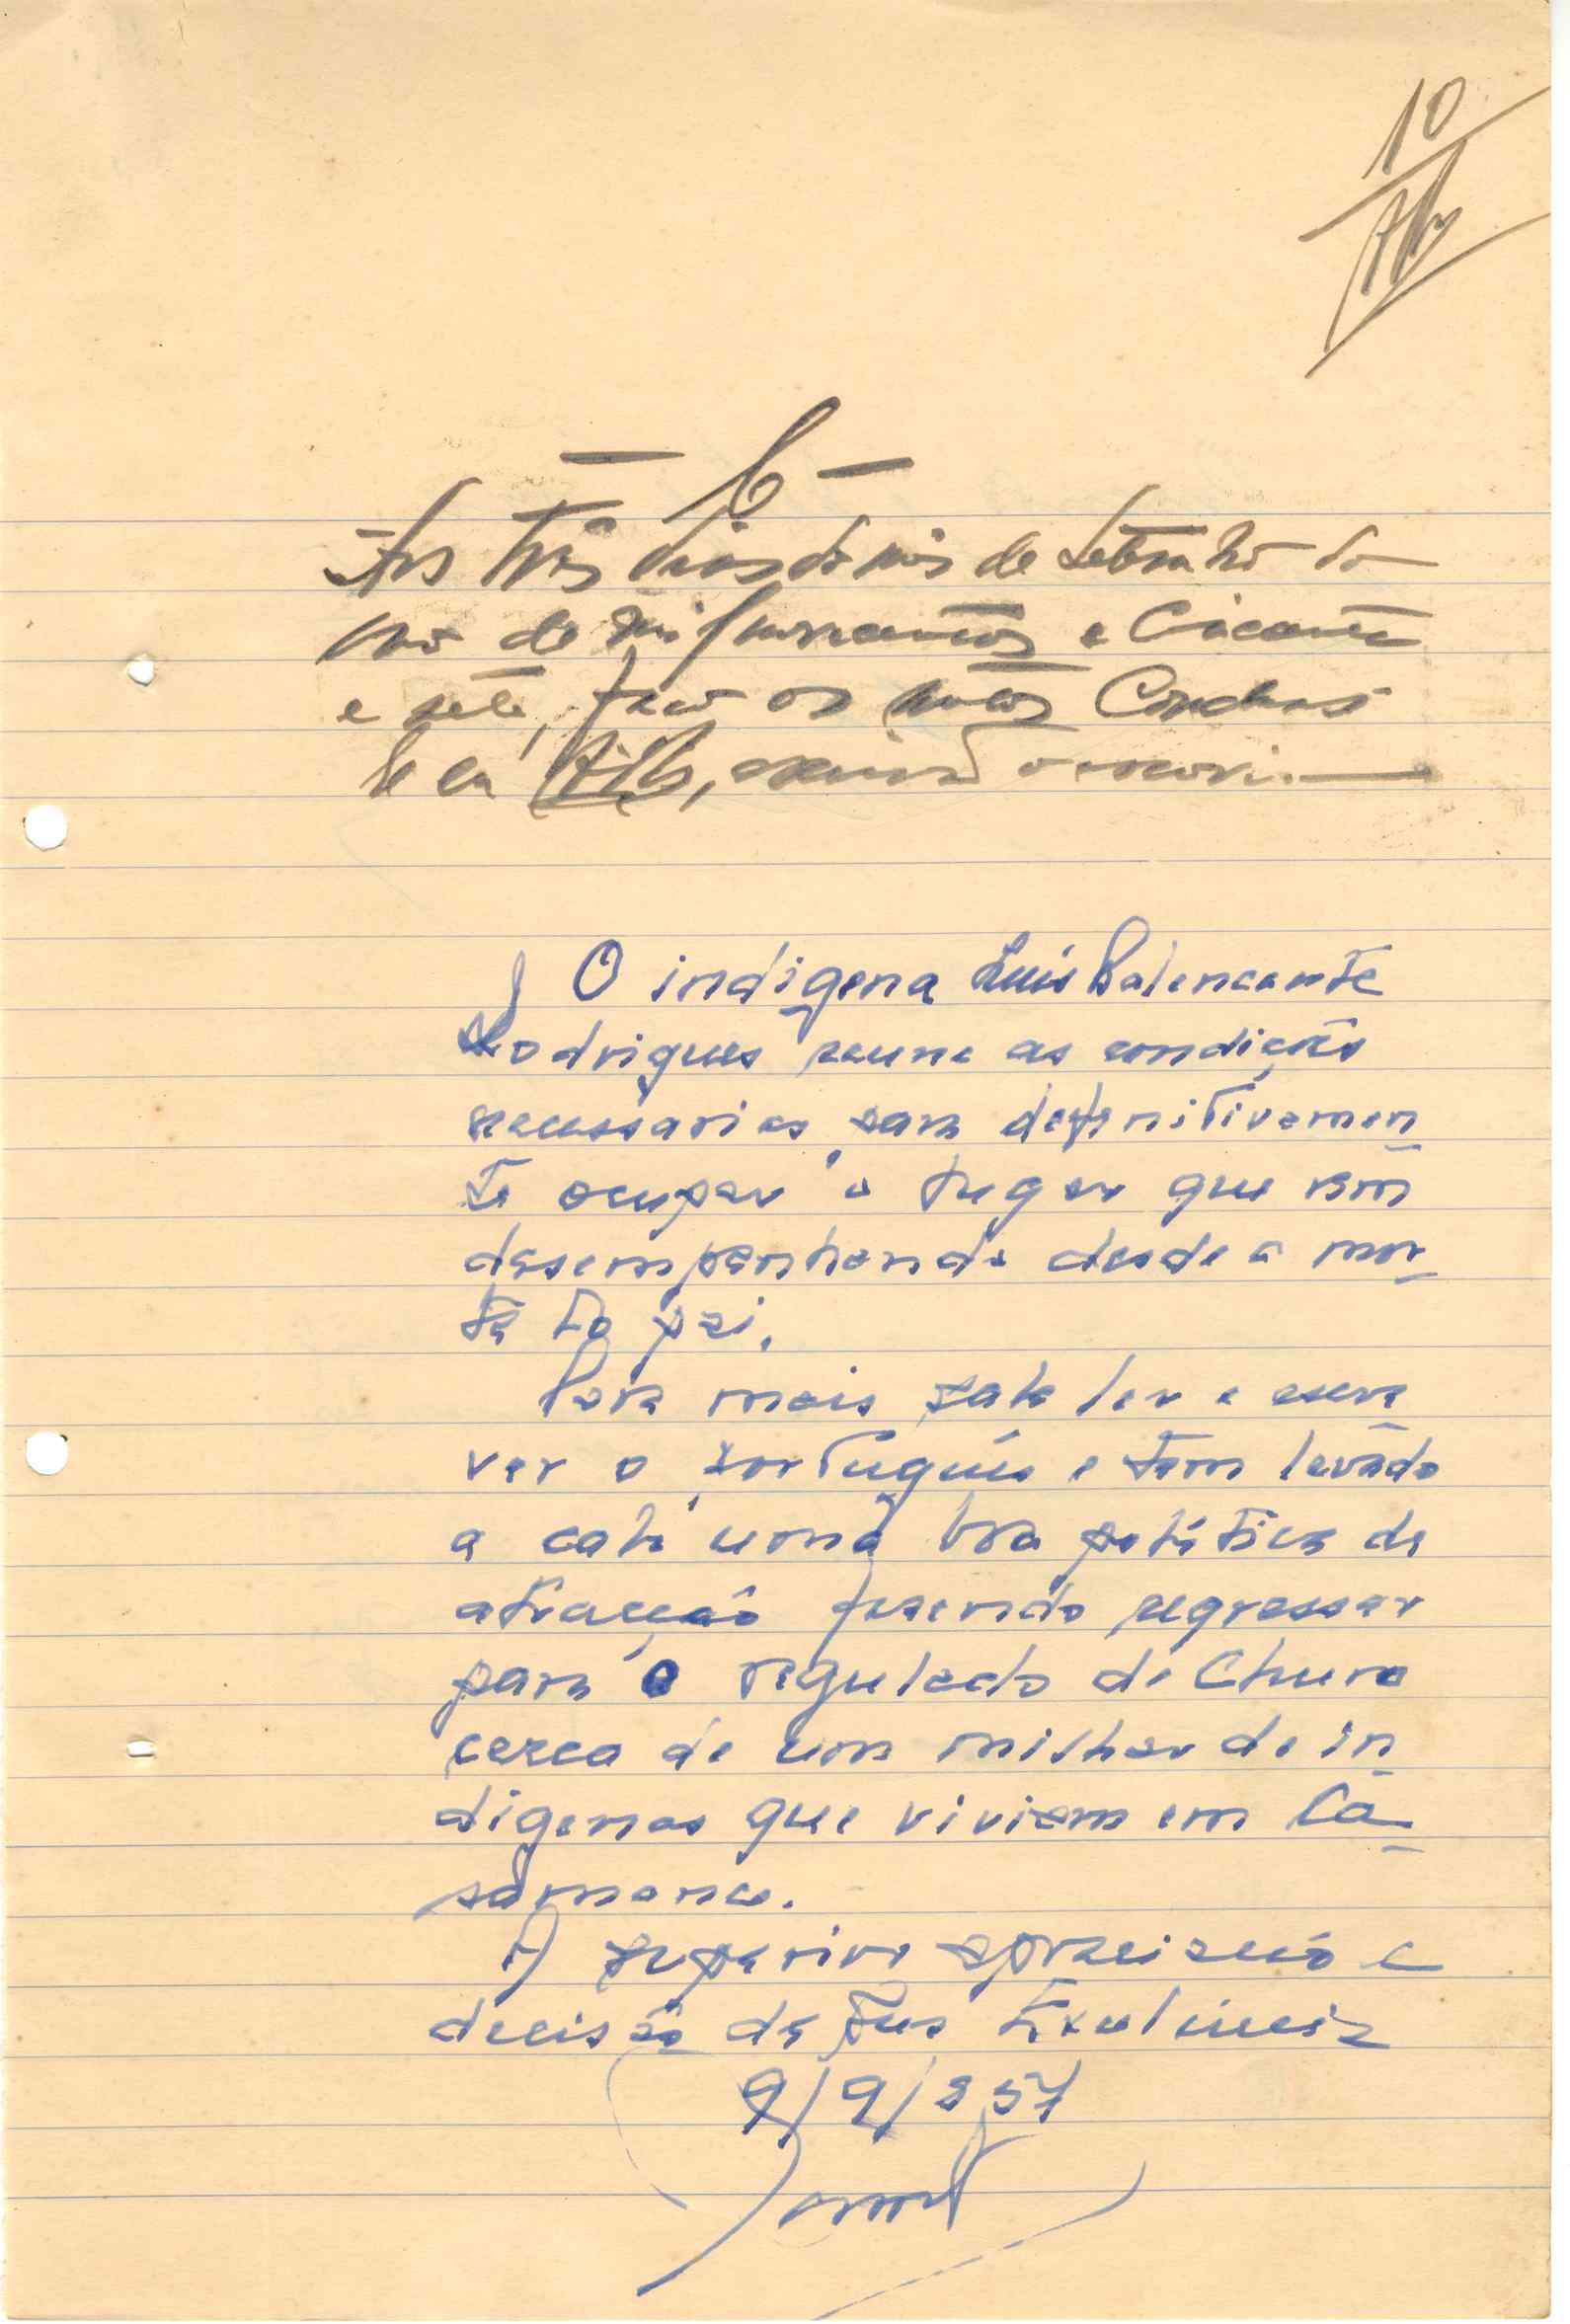 10
Aos três dias do mês de Setembro do
ano de mil novecentos e Cincoenta
e sete, faço os autos Conclusos
E eu, escrivão o escrevi.
O indigena Luis
Rodrigues reune as condições
necessarias para definitivamen
te ocupar o lugar que vem
desempenhando desde a mor
te do pai.
Para mais sabe ler e escre
ver o português e tem levado
a cabo uma boa politica de
atracção fazendo regressar
para o regulado de Churo
cerca de um milhar de in
digenas que viviam em Ca
samance.
À superior apreciação e
decisão de Sua Excelência
9/9/957